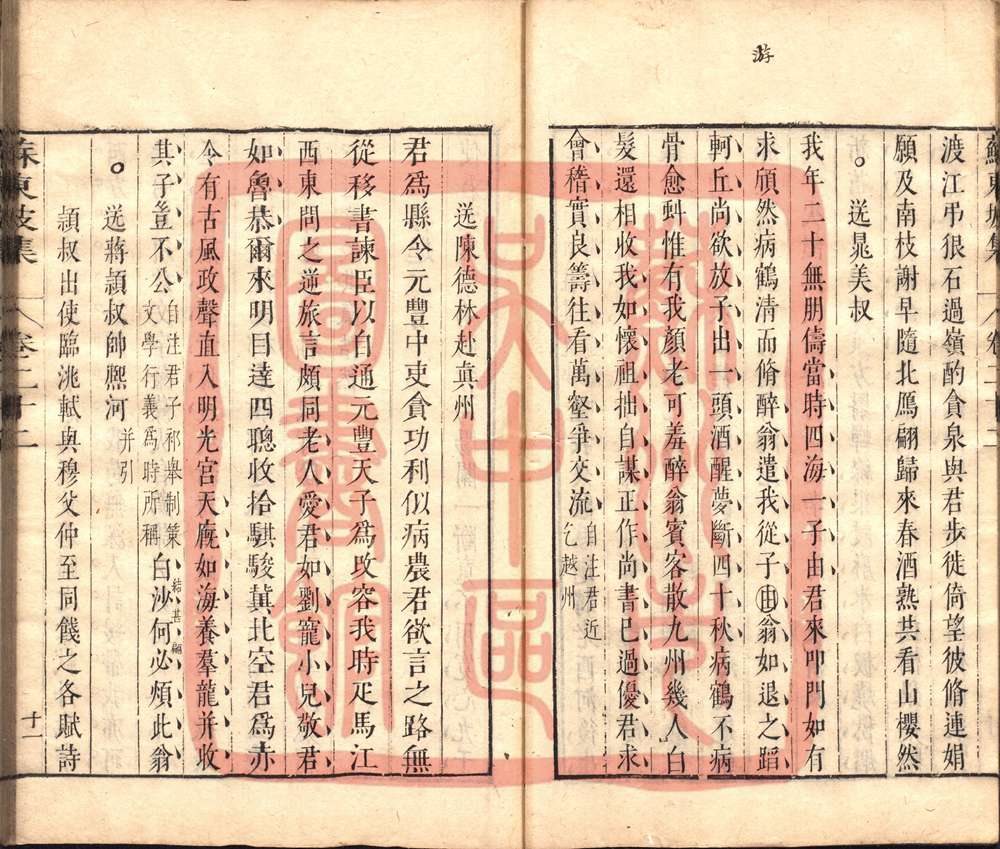 游
渡江弔狠石過嶺酌貪泉與君步徙倚望彼脩連娟
願及南枝謝早隨北鴈翩歸來春酒熟共看山櫻然
送晁美叔
我年二十無朋儔當時四海一子由君來叩門如有
求頎然病鶴清而脩醉翁遣我從子遊翁如退之蹈
軻丘尚欲放子出一頭酒醒夢斷四十秋病鶴不病
骨愈虯惟有我顏老可羞醉翁賓客散九州幾人白
髮還相收我如懷祖拙自謀正作尚書已過優君求
會稽實良籌往看萬壑爭交流自注君近
乞越州
送陳德林赴真州
君爲縣令元豐中吏貪功利似病農君欲言之路無
從移書諫臣以自通元豐天子爲改容我時疋馬江
西東問之逆旅言頗同老人愛君如劉寵小兒敬君
如魯恭爾來明目達四聰收拾騏駿冀北空君爲赤
令有古風政聲直入明光宮天廄如海養羣龍并收
其子豈不公自注君子祁舉制策
文學行義爲時所稱白沙何必煩此翁
結甚
送蔣穎叔帥熙河
并引
頴叔出使臨洮軾與穆父仲至同餞之各賦詩
蘇東坡集
卷二十二
十一